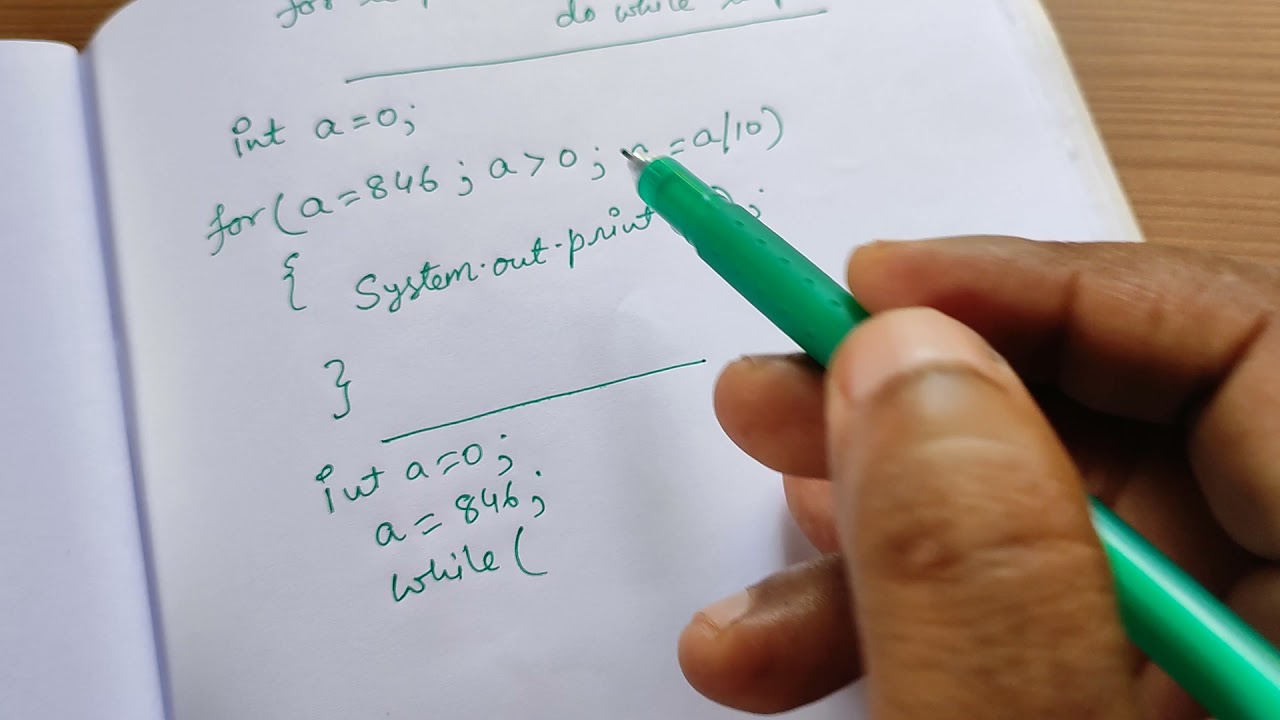 for
do while
int a=0;
for(a=846; a>0; a=a/10)
{ System.out.print ;
}
int a=0;
a=846;
while(